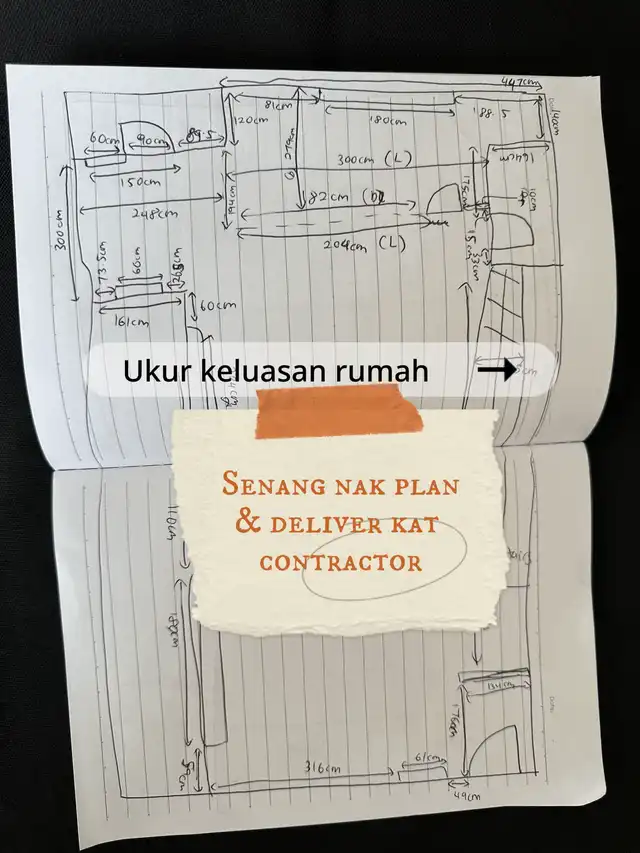 447cm
81cm
180cm
88.5
14cm
120cm
60cm
90cm
89.5
219cm
300cm (L)
164cm
150cm
175cm
10cm
248cm
194cm
82cm
300cm
204cm (L)
15cm
33cm
73.5cm
60cm
161cm
60cm
Ukur keluasan rumah
cm
Senang nak plan
& deliver kat
contractor
110cm
134cm
176cm
316cm
61cm
49cm